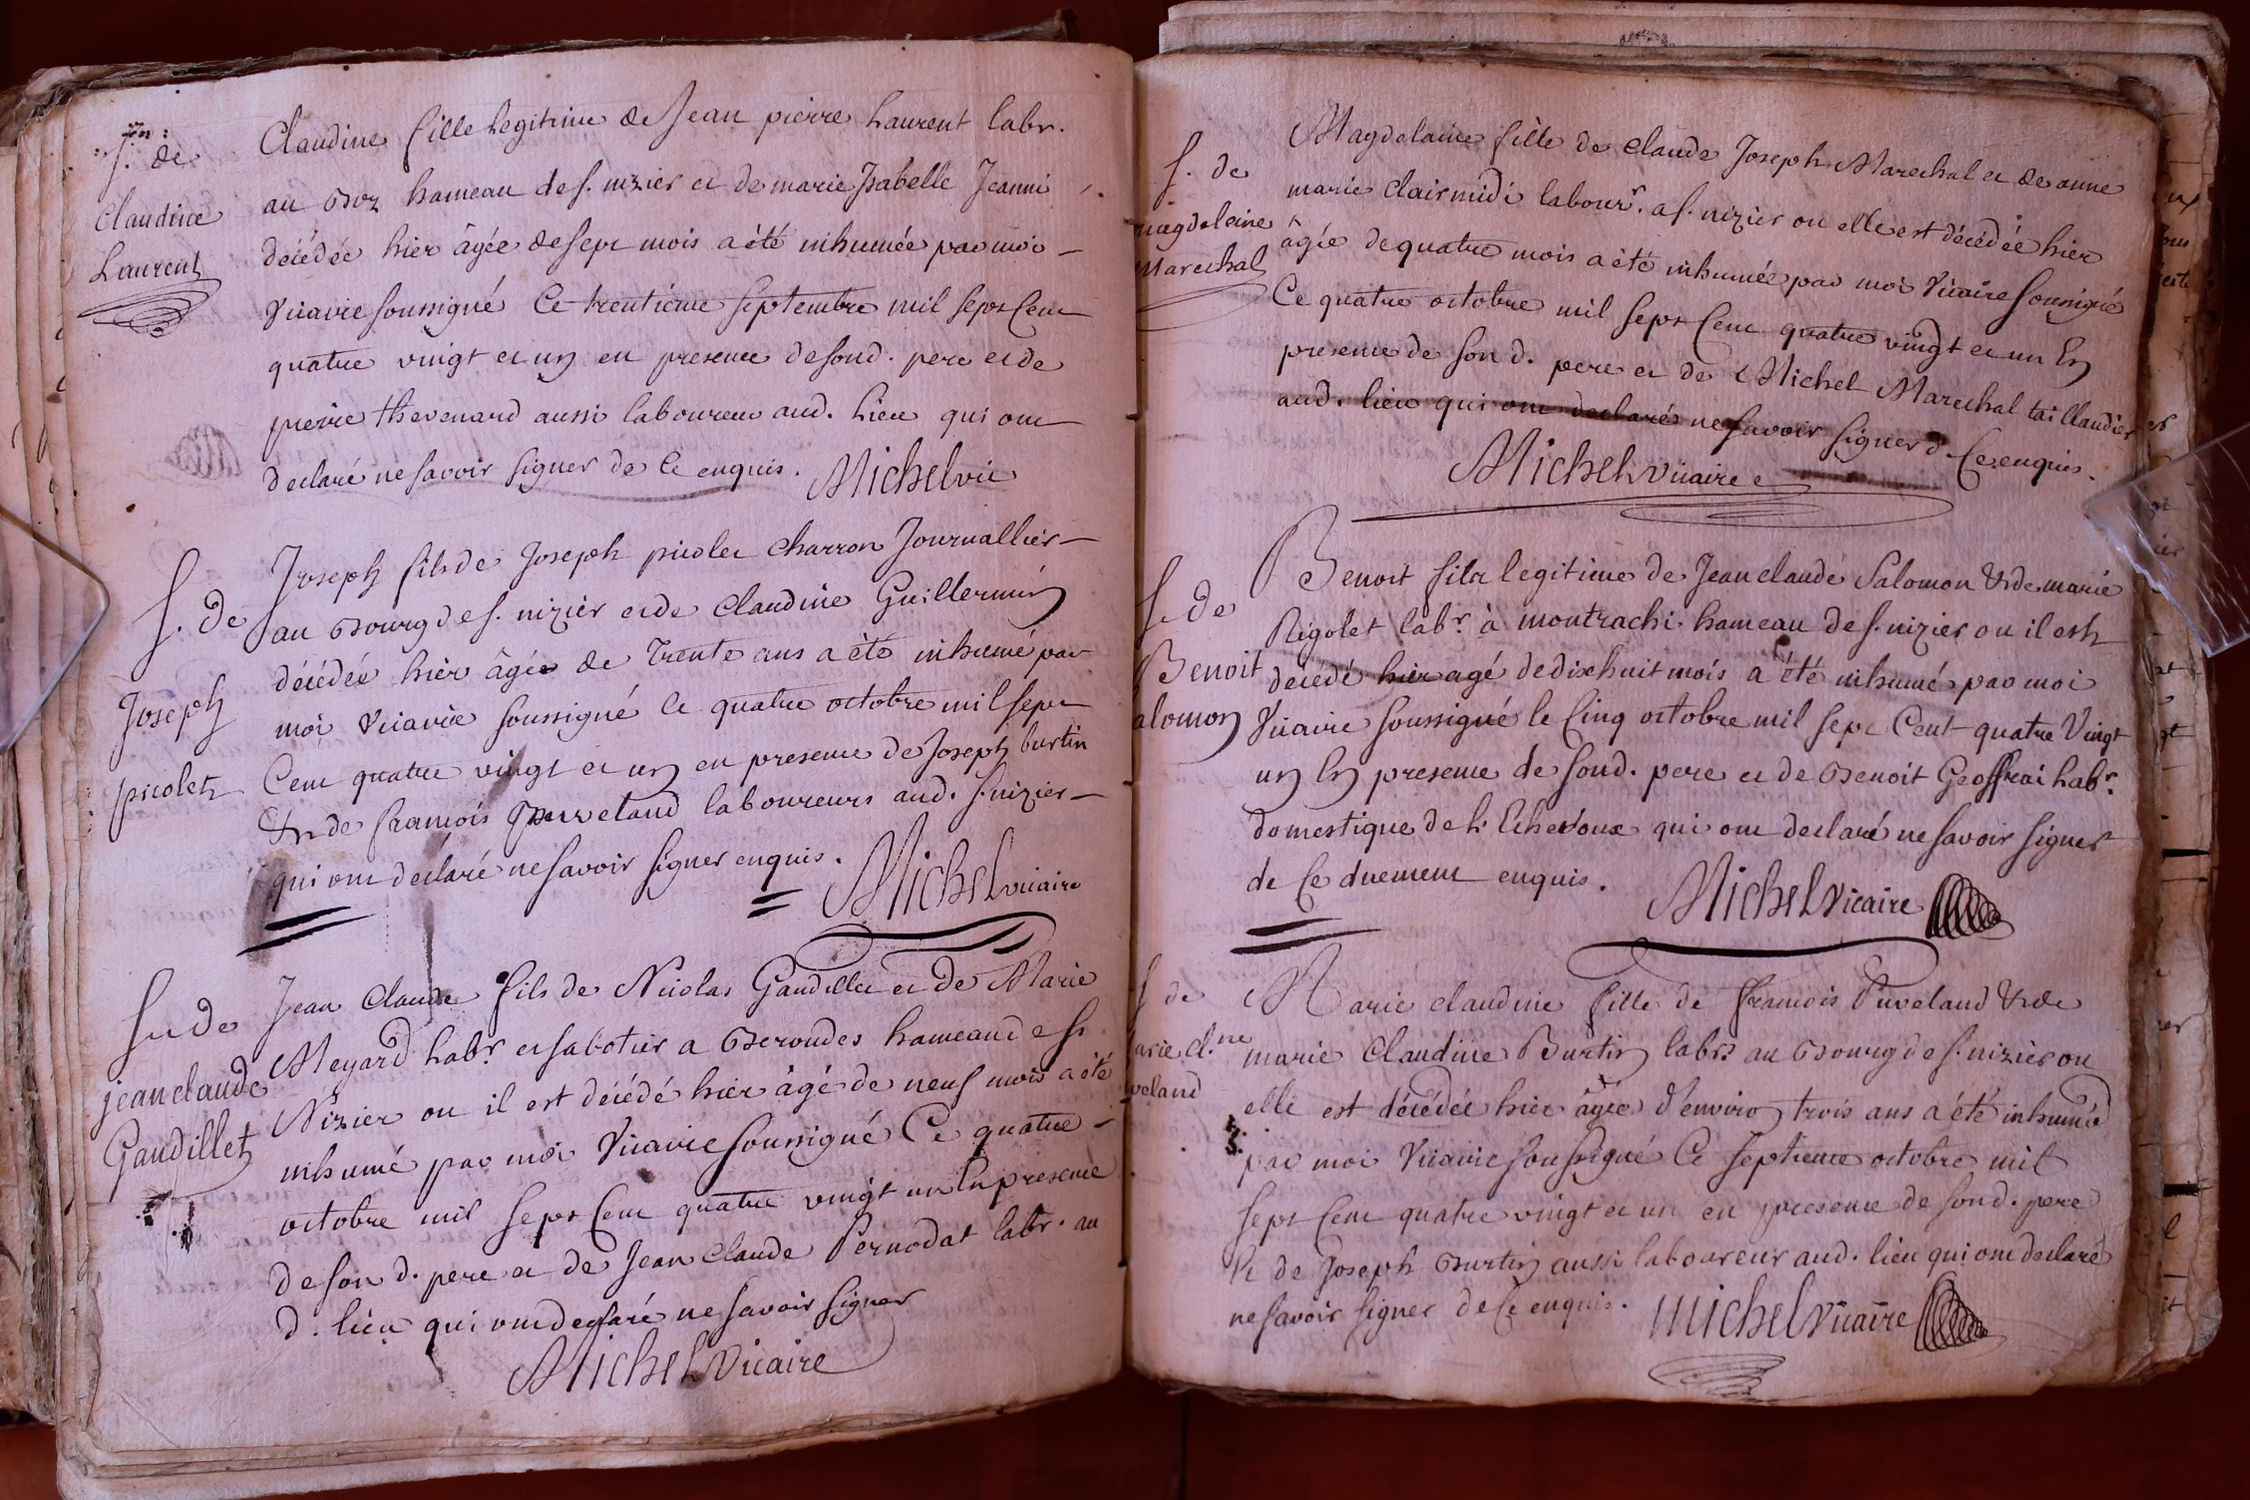 S. de
Claudine
Laurent
Claudine fille legitime de Jean pierre Laurent labr.
au Boz hameau de s. nizier et de marie Isabelle Jeanni
décédée hier âgée de sept mois a été inhumée par moi
Vicaire soussigné Ce trentième Septembre mil Sept Cent
quatre vingt et un en presence de sond. pere et de
pierre thevenard aussi laboureur aud. Lieu qui ont
declaré ne savoir signer de Ce enquis. Michel vic
S. de
Joseph
picolet
Joseph fils de Joseph picolet charron Journallier
au Bourg de s. nizier et de Claudine Guillermin
décédée hier âgée de Trente ans a été inhumé par
moi Vicaire soussigné le quatre octobre mil sept
Cent quatre vingt et un en presence de Joseph burtin
Et de francois puveland laboureurs aud. s. nizier
qui ont declaré ne savoir signer enquis.
Michel vicaire
S. de
jean claude
Gaudillet
Jean Claude fils de Nicolas Gaudillet et de Marie
Meyard labr. et sabotier a Berondes hameau de st
Nizier ou il est décédé hier âgé de neuf mois a été
inhumé par moi Vicaire soussigné Ce quatre
octobre mil Sept Cent quatre vingt un En presence
de son d. pere et de Jean Claude Pernodat labr. au
d. lieu qui ont declaré ne savoir signer
Michel Vicaire
S. de
magdelaine
Marechal
Magdelaine fille de claude Joseph Marechal et de anne
marie Clairmidi labour. a s. nizier ou elle est décédée hier
âgée de quatre mois a été inhumée par moi Vicaire soussigné
Ce quatre octobre mil Sept Cent quatre vingt et un En
presence de son d. pere et de Michel Marechal taillandier
aud. lieu qui ont declarés ne savoir signer d Ce enquis.
Michel vicaire
S. de
Benoit
alomon
Benoit fils legitime de Jean claude Salomon Et de marie
Rigolet labr. à montrachi hameau de s. nizier ou il est
decédé hier agé de dix huit mois a été inhumé par moi
Vicaire soussigné le Cinq octobre mil sept Cent quatre Vingt
un En presence de sond. pere et de Benoit Geoffrai labr.
domestique de qui ont declaré ne savoir signer
de Ce duement enquis.
Michel Vicaire
S de
arie cl.ne
veland
Marie claudine fille de francois Puveland Et de
marie Claudine Burtin labrs au Bourg de s. nizier ou
elle est décédée hier âgée d'environ trois ans a été inhumée
par moi Vicaire soussigné Ce septieme octobre mil
sept Cent quatre vingt et un en presence de sond. pere
Et de Joseph Burtin aussi laboureur aud. lieu qui ont declaré
ne savoir signer de Ce enquis.
Michel Vicaire